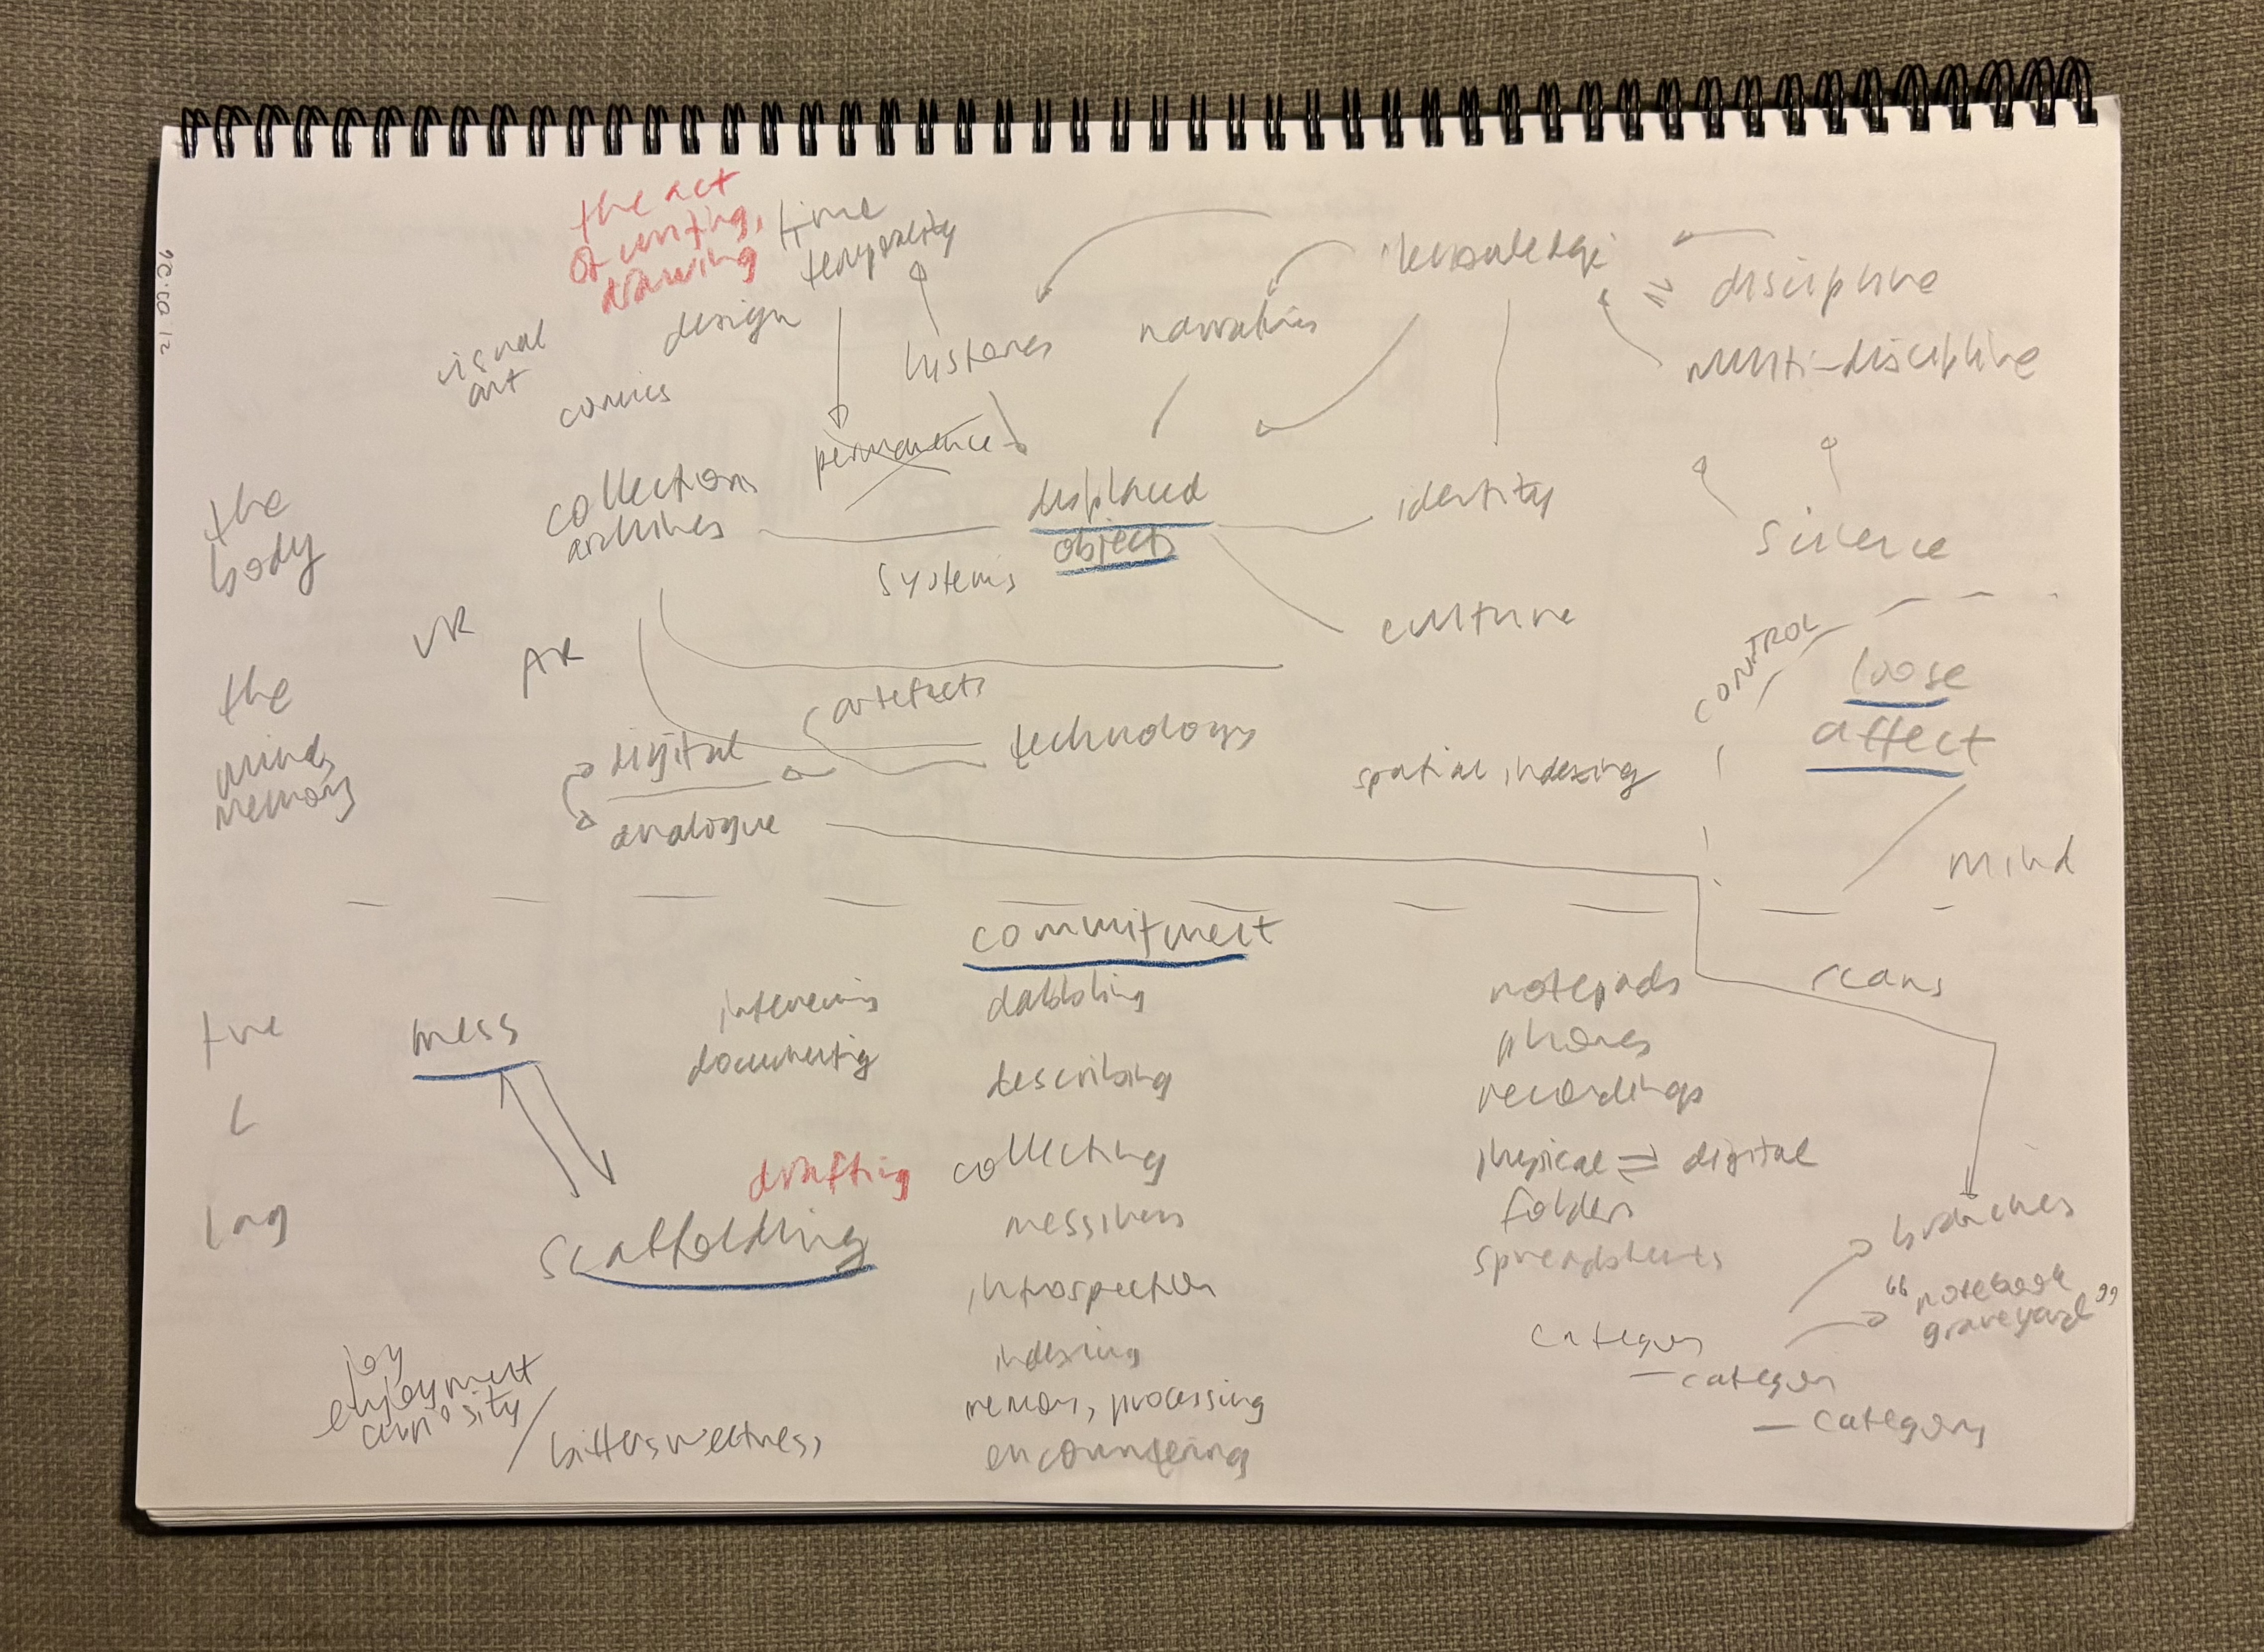 the act
of writing,
drawing
time
temporality
knowledge
discipline
multi-discipline
design
histories
narratives
visual
art
comics
permanence
collections
archives
displaced
objects
identity
systems
science
the
body
culture
CONTROL
loose
affect
VR
AR
artefacts
the
mind,
memory
digital
technology
spatial indexing
analogue
mind
commitment
the
mess
documenting
dabbling
describing
notepads
scans
phones
recordings
L
collecting
physical ⇌ digital
lag
drafting
scaffolding
folders
spreadsheets
branches
"notebook
graveyard"
introspection
indexing
memory, processing
encountering
category
— category
— category
joy
enjoyment
curiosity /
bittersweetness,